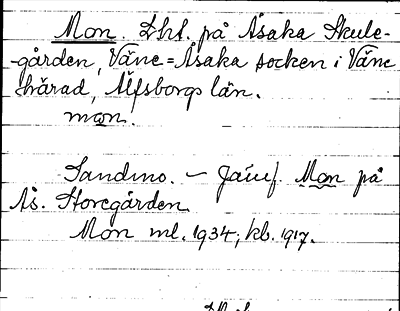 Mon. Lht. på Åsaka Skule-
gården, Väne=Åsaka socken i Väne
härad, Älfsborgs län.
mɷn.
Sandmo. – Jämf. Mon på
Ås. Storegården
Mon ml. 1934, kb. 1917.